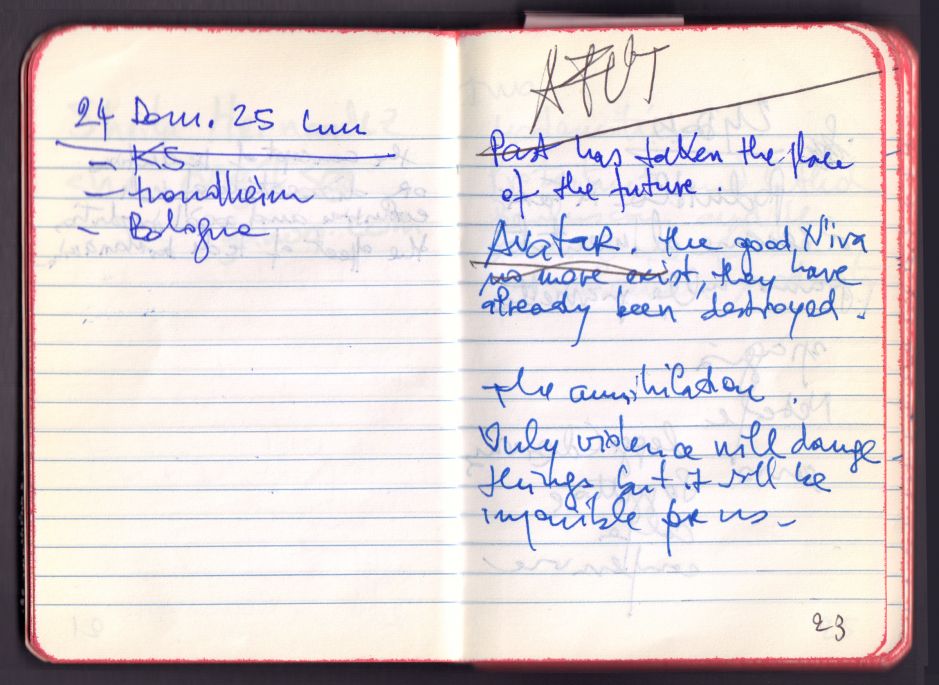 24 Dom. 25 Lun
- KS
- trondheim
- Bologna
AFUT
Past has taken the place
of the future.
Avatar. the good N'ivi
no more exist, they have
already been destroyed.
the annihilation.
Only violence will change
things, but it will be
impossible for us -
23